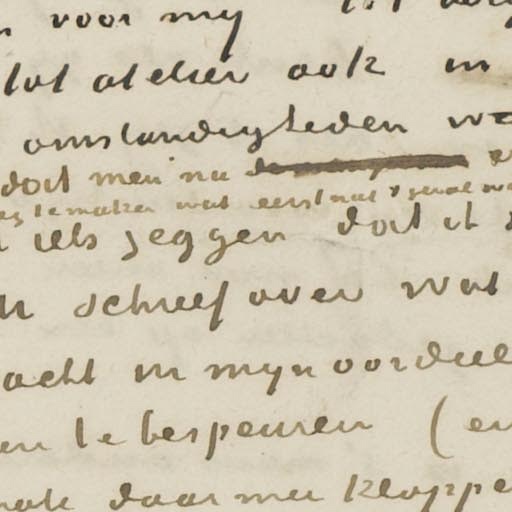 voor mij tot
tot atelier ook in
omstandigheden
dat men na
te maken wat eerst niet 't geval
iets zeggen dat ik
schreef over wat
acht in mijn oordeel
en te bespeuren (en
daar mee kloppe